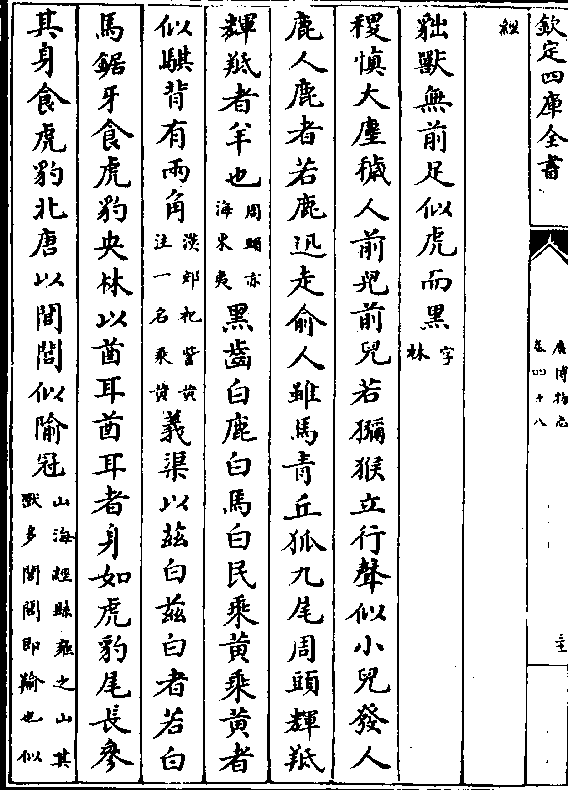 欽定四庫全書
廣博物志
卷四十八
經
貀獸無前足似虎而黑字林
稷慎大麈穢人前兒前兒若獼猴立行聲似小兒發人
鹿人鹿者若鹿迅走俞人雖馬青丘狐九尾周頭輝羝
輝羝者羊也周頭亦海東夷黑齒白鹿白馬白民乘黃乘黃者
似騏背有兩角漢郊祀訾黃注一名乘黃義渠以茲白茲白者若白
馬鋸牙食虎豹央林以酋耳酋耳者身如虎豹尾長參
其身食虎豹北唐以閭閭似隃冠山海經縣雍之山其獸多閭閭即羭也似